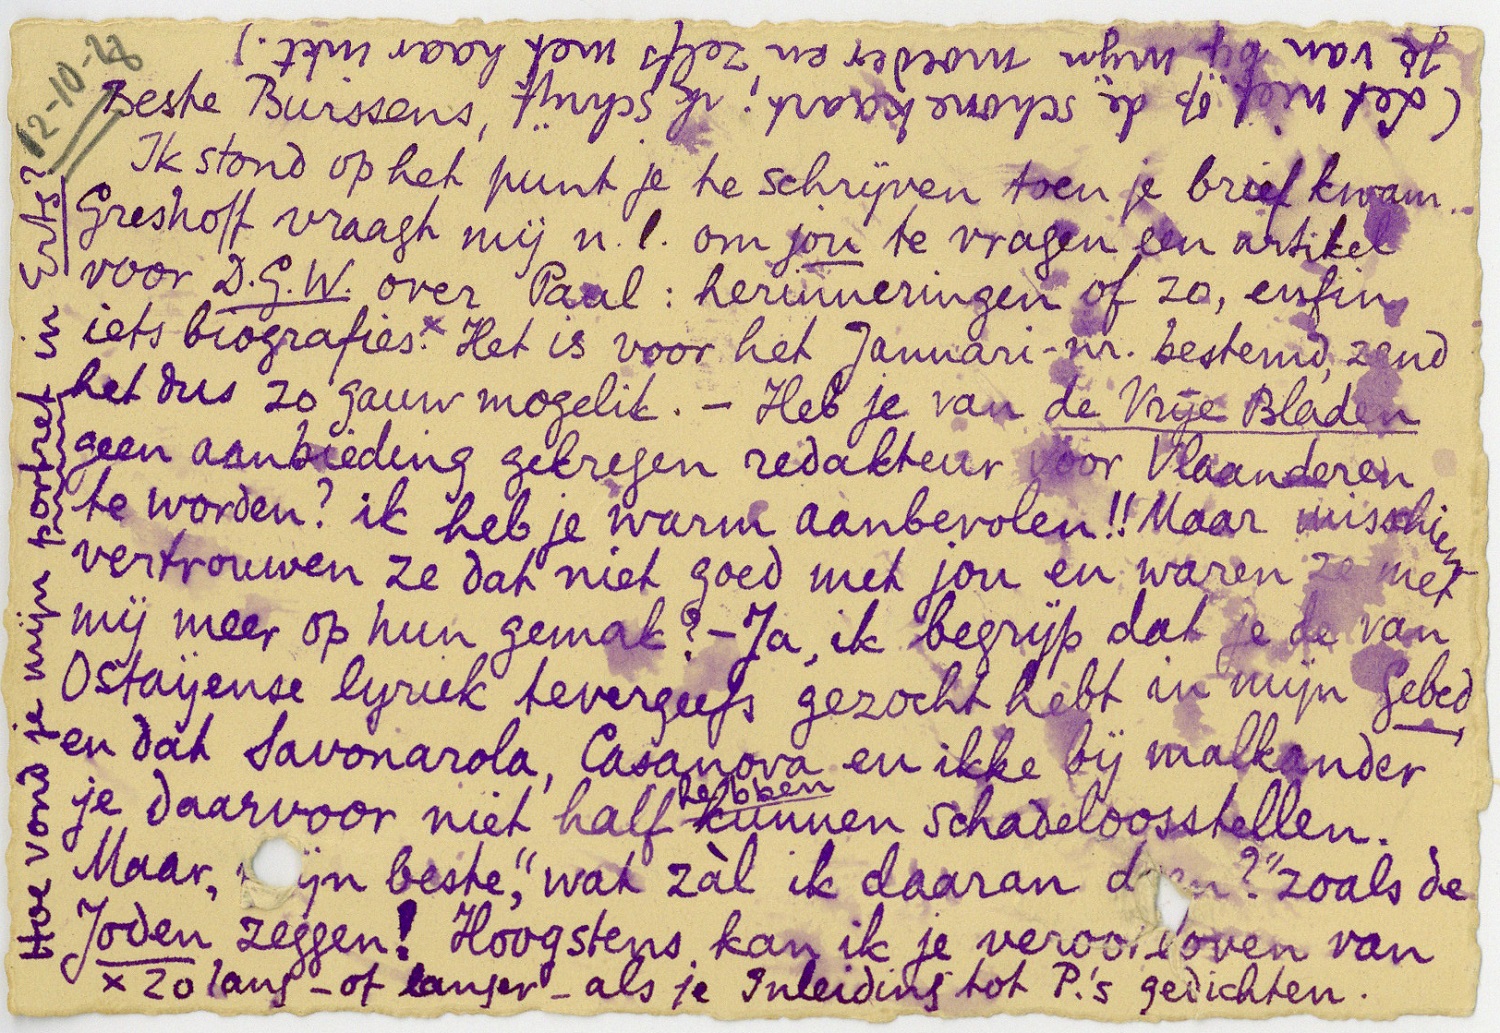 12-10-28
(Let niet op de schone kaart; ik schrijf
je van bij mijn moeder en zelfs met haar inkt.)
Beste Burssens,
Ik stond op het punt je te schrijven toen je brief kwam.
Greshoff vraagt mij n.l. om jou te vragen een artikel
voor D.G.W. over Paul: herinneringen of zo, enfin
iets biografies.x Het is voor het Januari-nr. bestemd, zend
het dus zo gauw mogelik. – Heb je van de Vrije Bladen
geen aanbieding gekregen redakteur voor Vlaanderen
te worden? ik heb je warm aanbevolen!! Maar misschien
vertrouwen ze dat niet goed met jou en waren ze met
mij meer op hun gemak? – Ja, ik begrijp dat je de van
Ostaijense lyriek tevergeefs gezocht hebt in mijn Gebed,
en dat Savonarola, Casanova en ikke bij malkander
je daarvoor niet half hebben kunnen schadeloosstellen.
Maar, mijn beste, "wat zàl ik daaran doen?" zoals de
Joden zeggen! Hoogstens kan ik je veroorloven van
x zo lang – of langer – als je Inleiding tot P.'s gedichten.
Hoe vond je mijn portret in